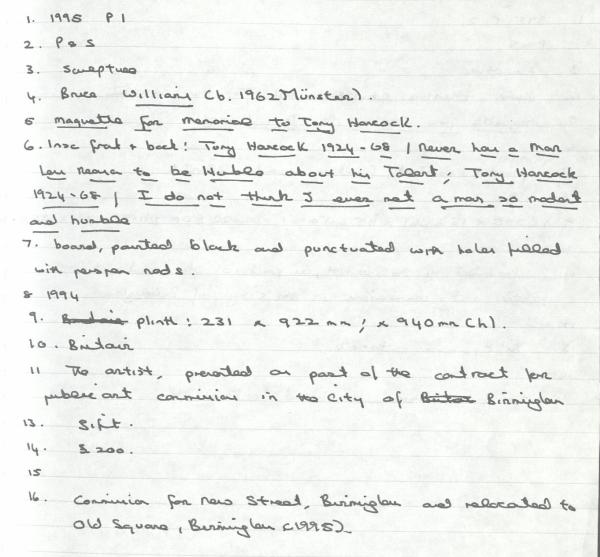 1. 1995 P1
2. P & S
3. Sculpture
4. Bruce Williams (b. 1962 Münster).
5 maquette for memorial to Tony Hancock.
6. Insc front & back: Tony Hancock 1924-68 / never has a man
less reason to be Humble about his Talent; Tony Hancock
1924-68 / I do not think I ever met a man so modest
and humble
7. board, painted black and punctuated with holes filled
with perspex rods.
8 1994
9. plinth: 231 x 922 mm; x 940mm (h).
10. Britain
11 The artist, presented as part of the contract for
public art commission in the City of Birmingham
13. Gift.
14. £200.
15
16. Commission for New Street, Birmingham and relocated to
Old Square, Birmingham (1995)